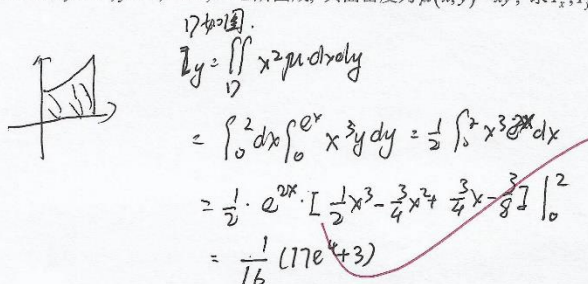 μ(x,y)=xy, 求I_x, I_y
D如图.
I_y = ∬_D x²μ·dxdy
= ∫_0^2 dx ∫_0^{e^x} x³y dy = 1/2 ∫_0^2 x³e^{2x}dx
= 1/2 · e^{2x} · [1/2 x³ - 3/4 x² + 3/4 x - 3/8] |_0^2
= 1/16 (17e⁴+3)